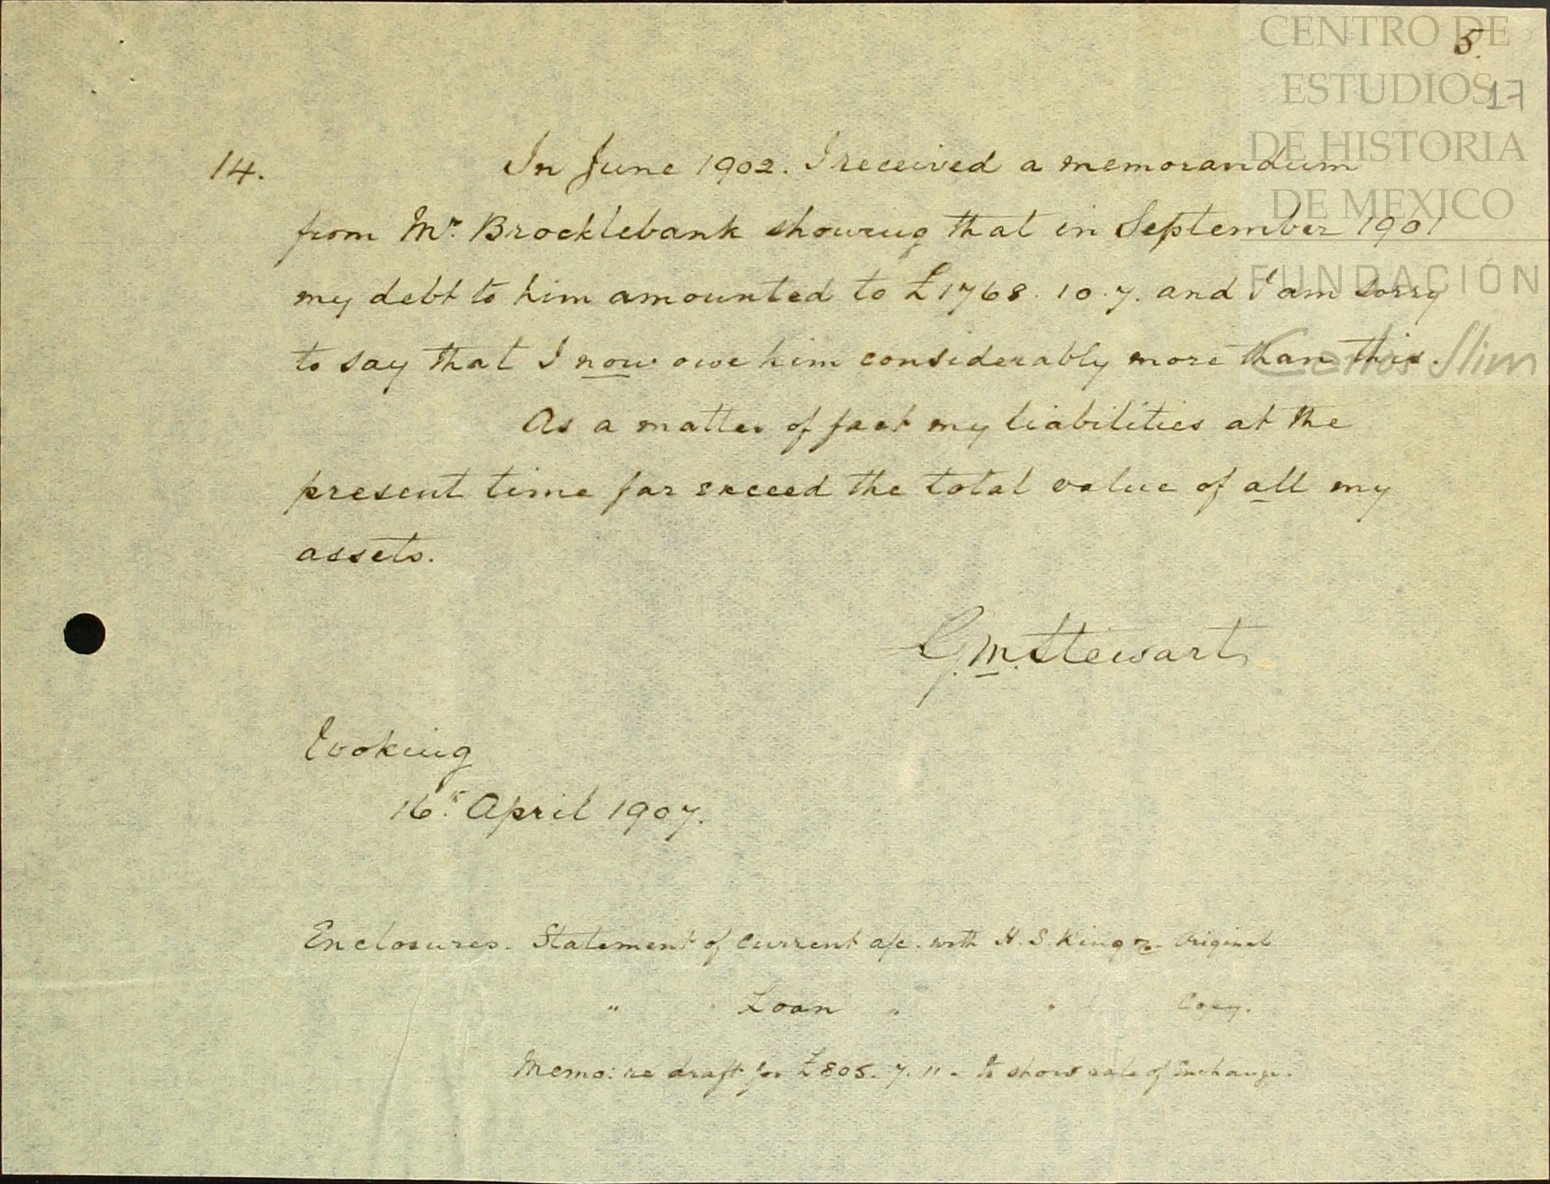 CENTRO DE
ESTUDIOS
DE HISTORIA
DE MEXICO
FUNDACIÓN
Carlos Slim
5.
17
14. In June 1902. I received a memorandum
from Mr. Brocklebank showing that in September 1901
my debt to him amounted to £1768.10.7. and I am sorry
to say that I now owe him considerably more than this.
As a matter of fact my liabilities at the
present time far exceed the total value of all my
assets.
G.M. Stewart
Woking
16th April 1907.
Enclosures. Statement of current a/c. with H. S. King &c. Original
" " Loan " " Copy.
Memo: re draft for £805.7.11. to show rate of Exchange.